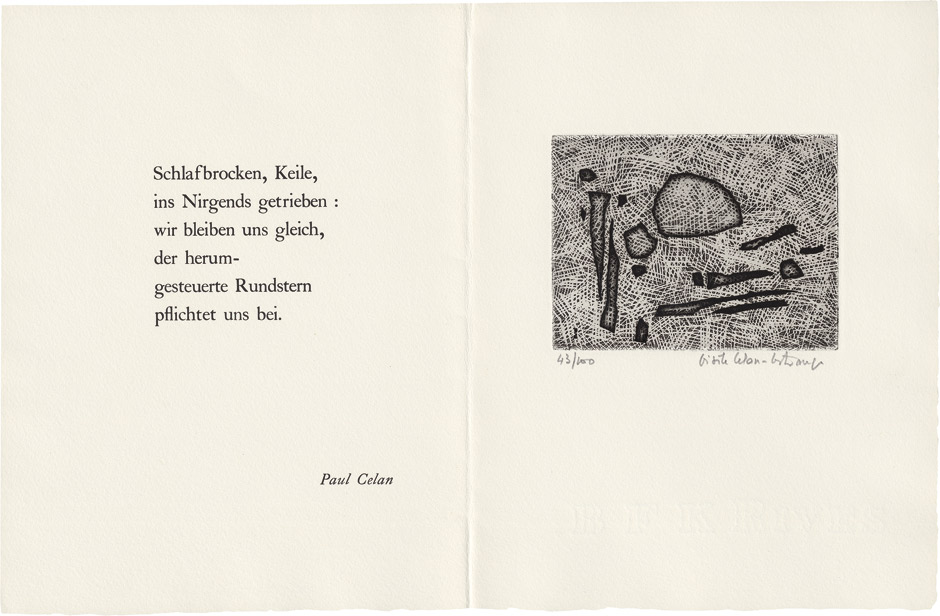 Schlafbrocken, Keile,
ins Nirgends getrieben :
wir bleiben uns gleich,
der herum-
gesteuerte Rundstern
pflichtet uns bei.
Paul Celan
43/100
Gisèle Celan-Lestrange
B F K RIVES